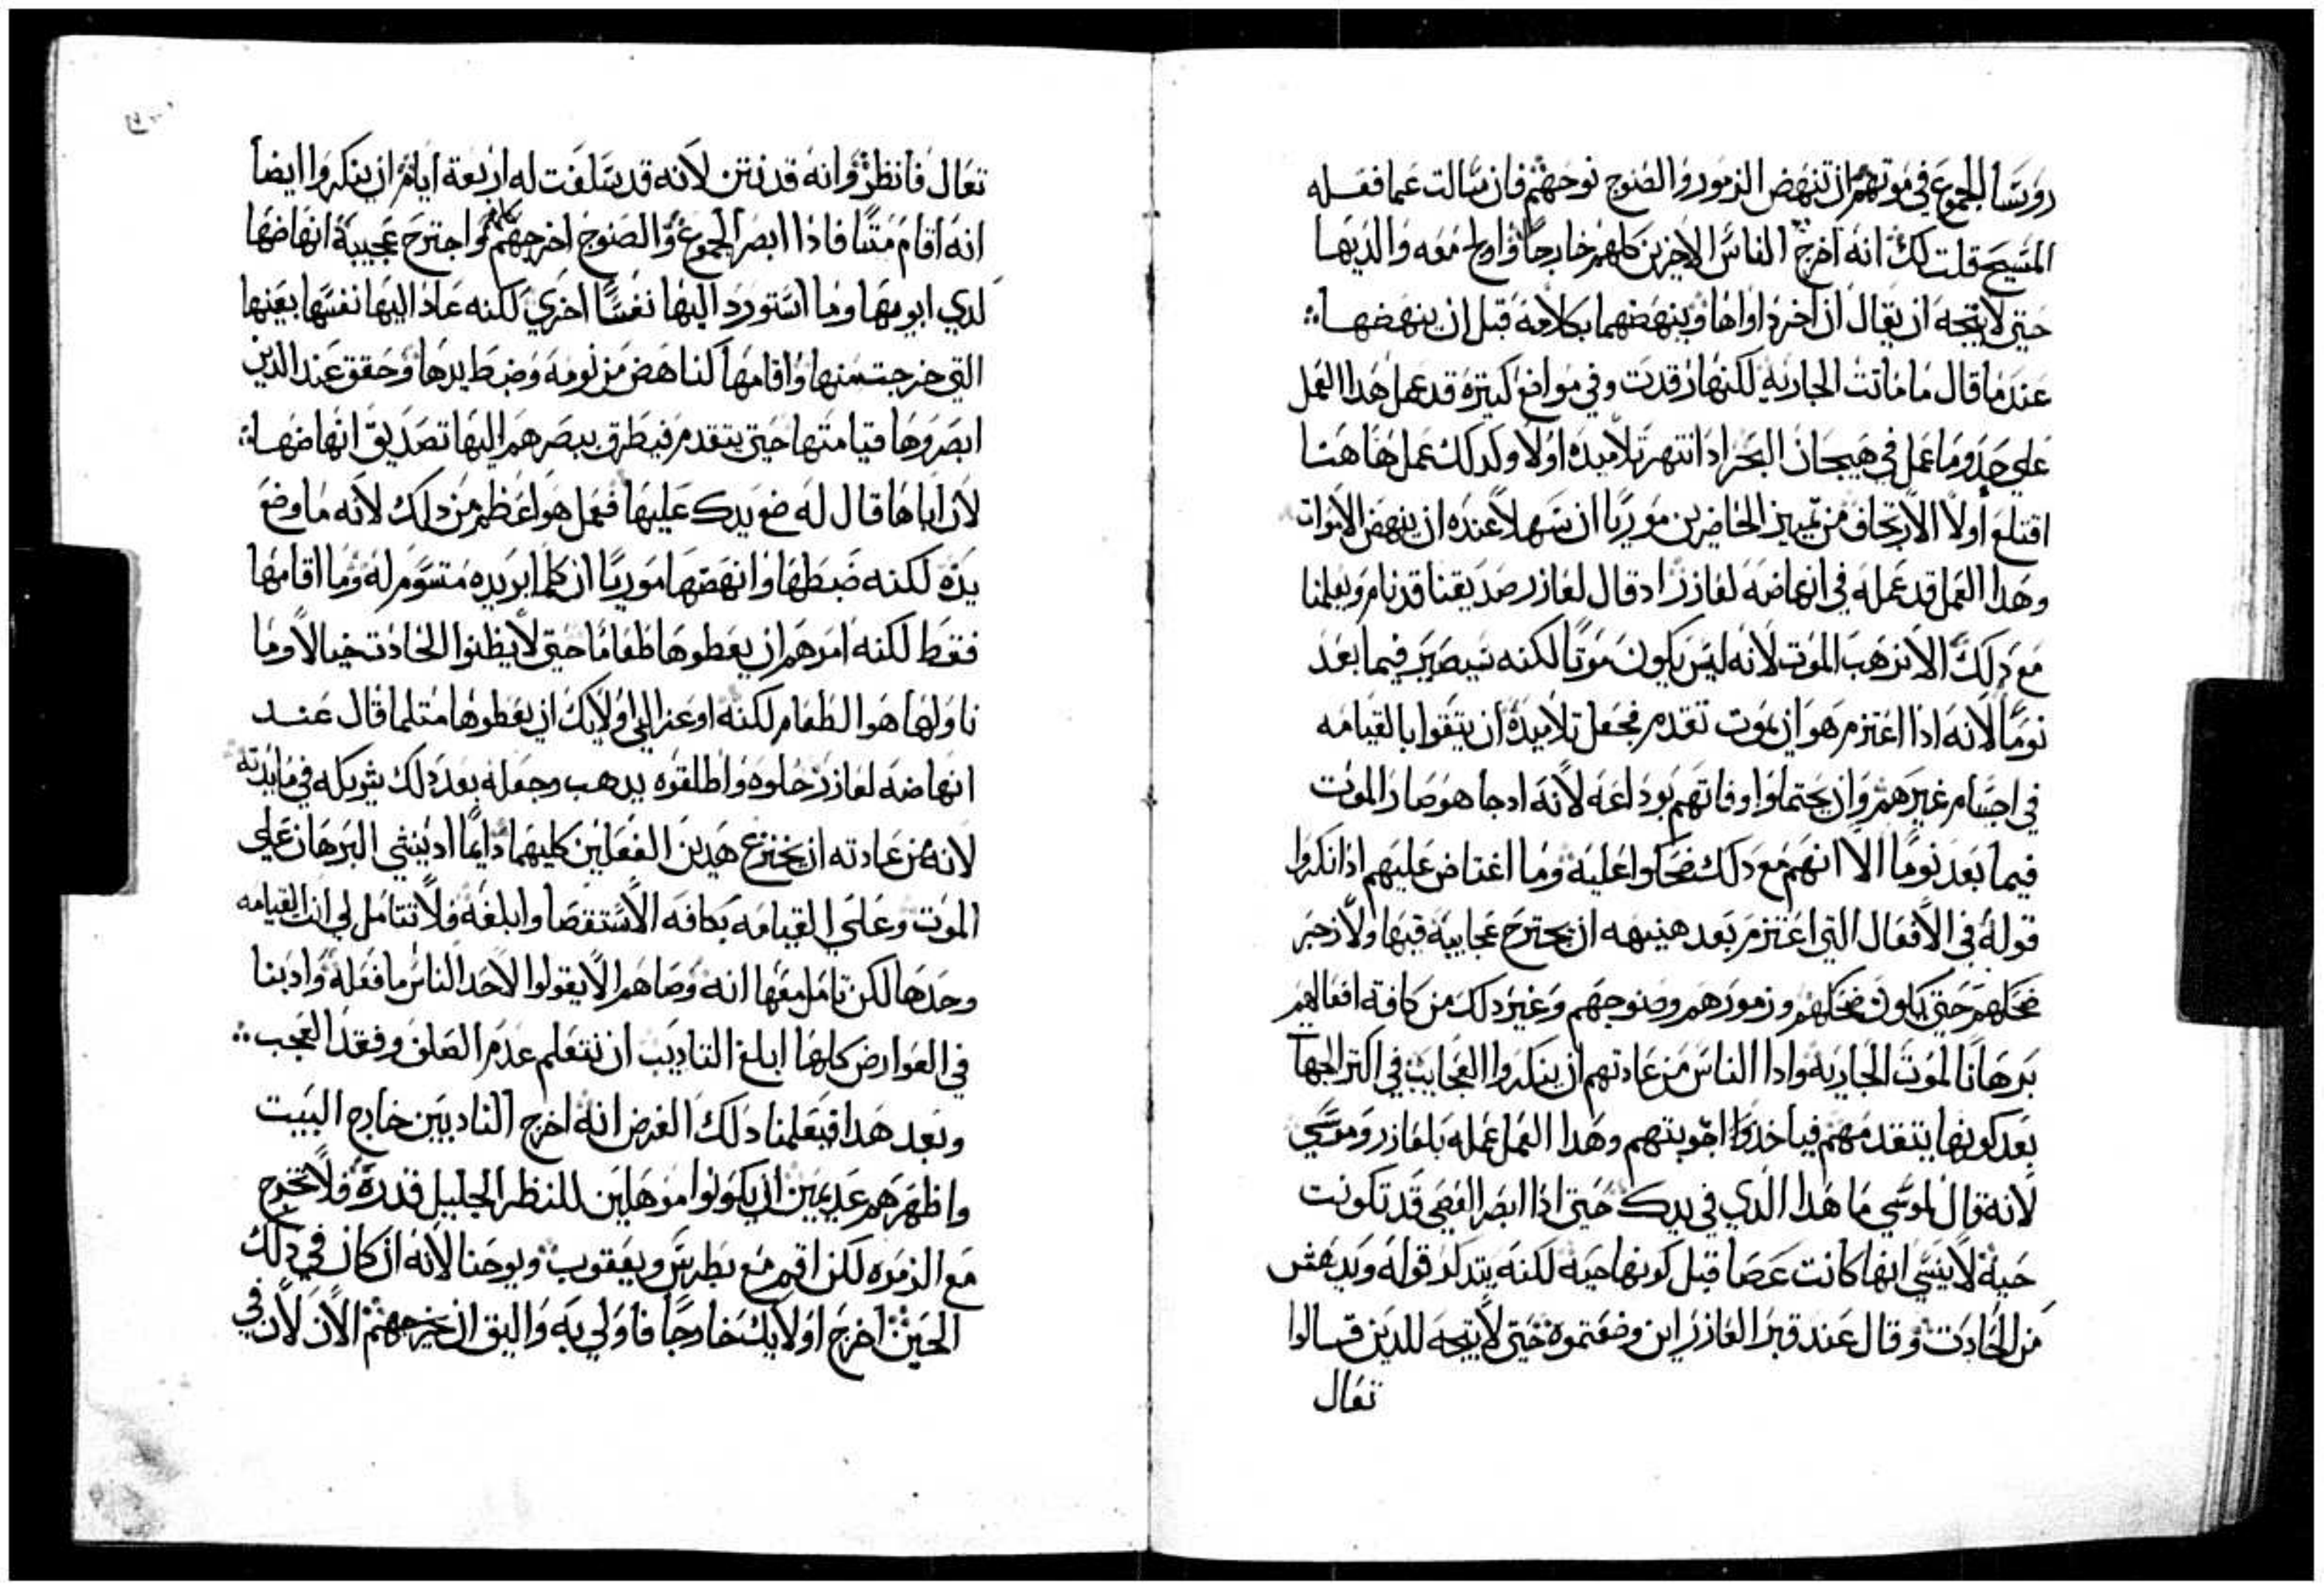 روسا الجموع في موتهم ان تنهض الزمور والصنوج نوحهم فان سالت عما فعله
المسيح قلت لك انه اخرج الناس الاخرين كلهم خارجا واولج معه والديها
حتى لا يتجه ان يقال ان اخر داواها وينهضهما بكلامه قبل ان ينهضها
عند ما قال ما ماتت الجاريه لكنها رقدت وفي مواضع كتيره قد عمل هدا العمل
على حدو ما عمل في هيجان البحر اد انتهر تلاميده اولا وكدلك عمل هاهنا
اقتلع اولا الارتجاف من تمييز الحاضرين موريا ان سهلا عنده ان ينهض الاموات
وهدا العمل قد عمله في انهاضه لعازر اد قال لعازر صديقنا قد نام ويعلمنا
مع دلك الا نرهب الموت لانه ليس يكون موتا لكنه سيصير فيما بعد
نوما لانه اذا اعتزم هو ان يموت تقدم فجعل تلاميده ان يتقوا بالقيامه
في اجسام غيرهم وان يحتملوا وفاتهم بوداعه لانه ادجا هو صار الموت
فيما بعد نوما الا انهم مع دلك ضحكوا عليه وما اغتاض عليهم اذ انكروا
قوله في الافعال التي اعتزم بعد هنيهه ان يجترح عجايبه فيها ولا زجر
ضحكهم حتى يكون ضحكهم وزمورهم وصنوجهم وغير دلك من كافة افعالهم
برهانا لموت الجاريه وادا الناس من عادتهم ان ينكروا العجايب في اكتر الجهات
بعد كونها يتقدمهم فياخدوا اجوبتهم وهدا العمل عمله بلعازر وموسي
لانه قال لموسي ما هدا الدي في يدك حتى اذا ابصر العصى قد تكونت
حية لا ينسي انها كانت عصا قبل كونها حيه لكنه يتدكر قوله ويدهش
من الحادت وقال عند قبر العازر اين وضعتموه حتى لا يتجه للدين قالوا
تعال
تعال فانظر وانه قد نتن لانه قد سلفت له اربعة ايام ان ينكروا ايضا
انه اقام متنا فاذا ابصر الجموع والصنوج اخرجهم كلهم واجترح عجيبة انهاضها
لدي ابويها وما استورد اليها نفسا اخري لكنه عاد اليها نفسها بعينها
التي خرجت منها واقامها كناهض من نومه وضبط يدها وحقق عند الدين
ابصروها قيامتها حتى يتقدم فيطرق ببصرهم اليها تصديق انهاضها
لان اباها قال له ضع يدك عليها فعمل هو اعظم من دلك لانه ما وضع
يده لكنه ضبطها وانهضها موريا ان كلما يريده متسوم له وما اقامها
فقط لكنه امرهم ان يعطوها طعاما حتى لا يظنوا الحادت خيالا وما
ناولها هو الطعام لكنه اوعز الى اولايك ان يعطوها متلما قال عند
انهاضه لعازر حلوه واطلقوه يدهب وجعله بعد دلك شريكه في مايدته
لانه من عادته ان يخترع هدين الفعلين كليهما دايما اد ينشي البرهان على
الموت وعلى القيامه بكافه الاستقصا وابلغه فلا تتامل لي انت القيامه
وحدها لكن تامل معها انه وصاهم الا يقولوا لاحد الناس ما فعله وادبنا
في العوارض كلها ابلغ التاديب ان نتعلم عدم الصلف وفقد العجب
وبعد هدا فيعلمنا دلك الغرض انه اخرج النادبين خارج البيت
واظهرهم عديمين ان يكونوا موهلين للنظر الجليل قدره فلا تخرج
مع الزمره لكن اقم مع بطرس ويعقوب ويوحنا لانه ان كان في دلك
الحين اخرج اولايك خارجا فاولي به واليق ان يخرجهم الان لان في